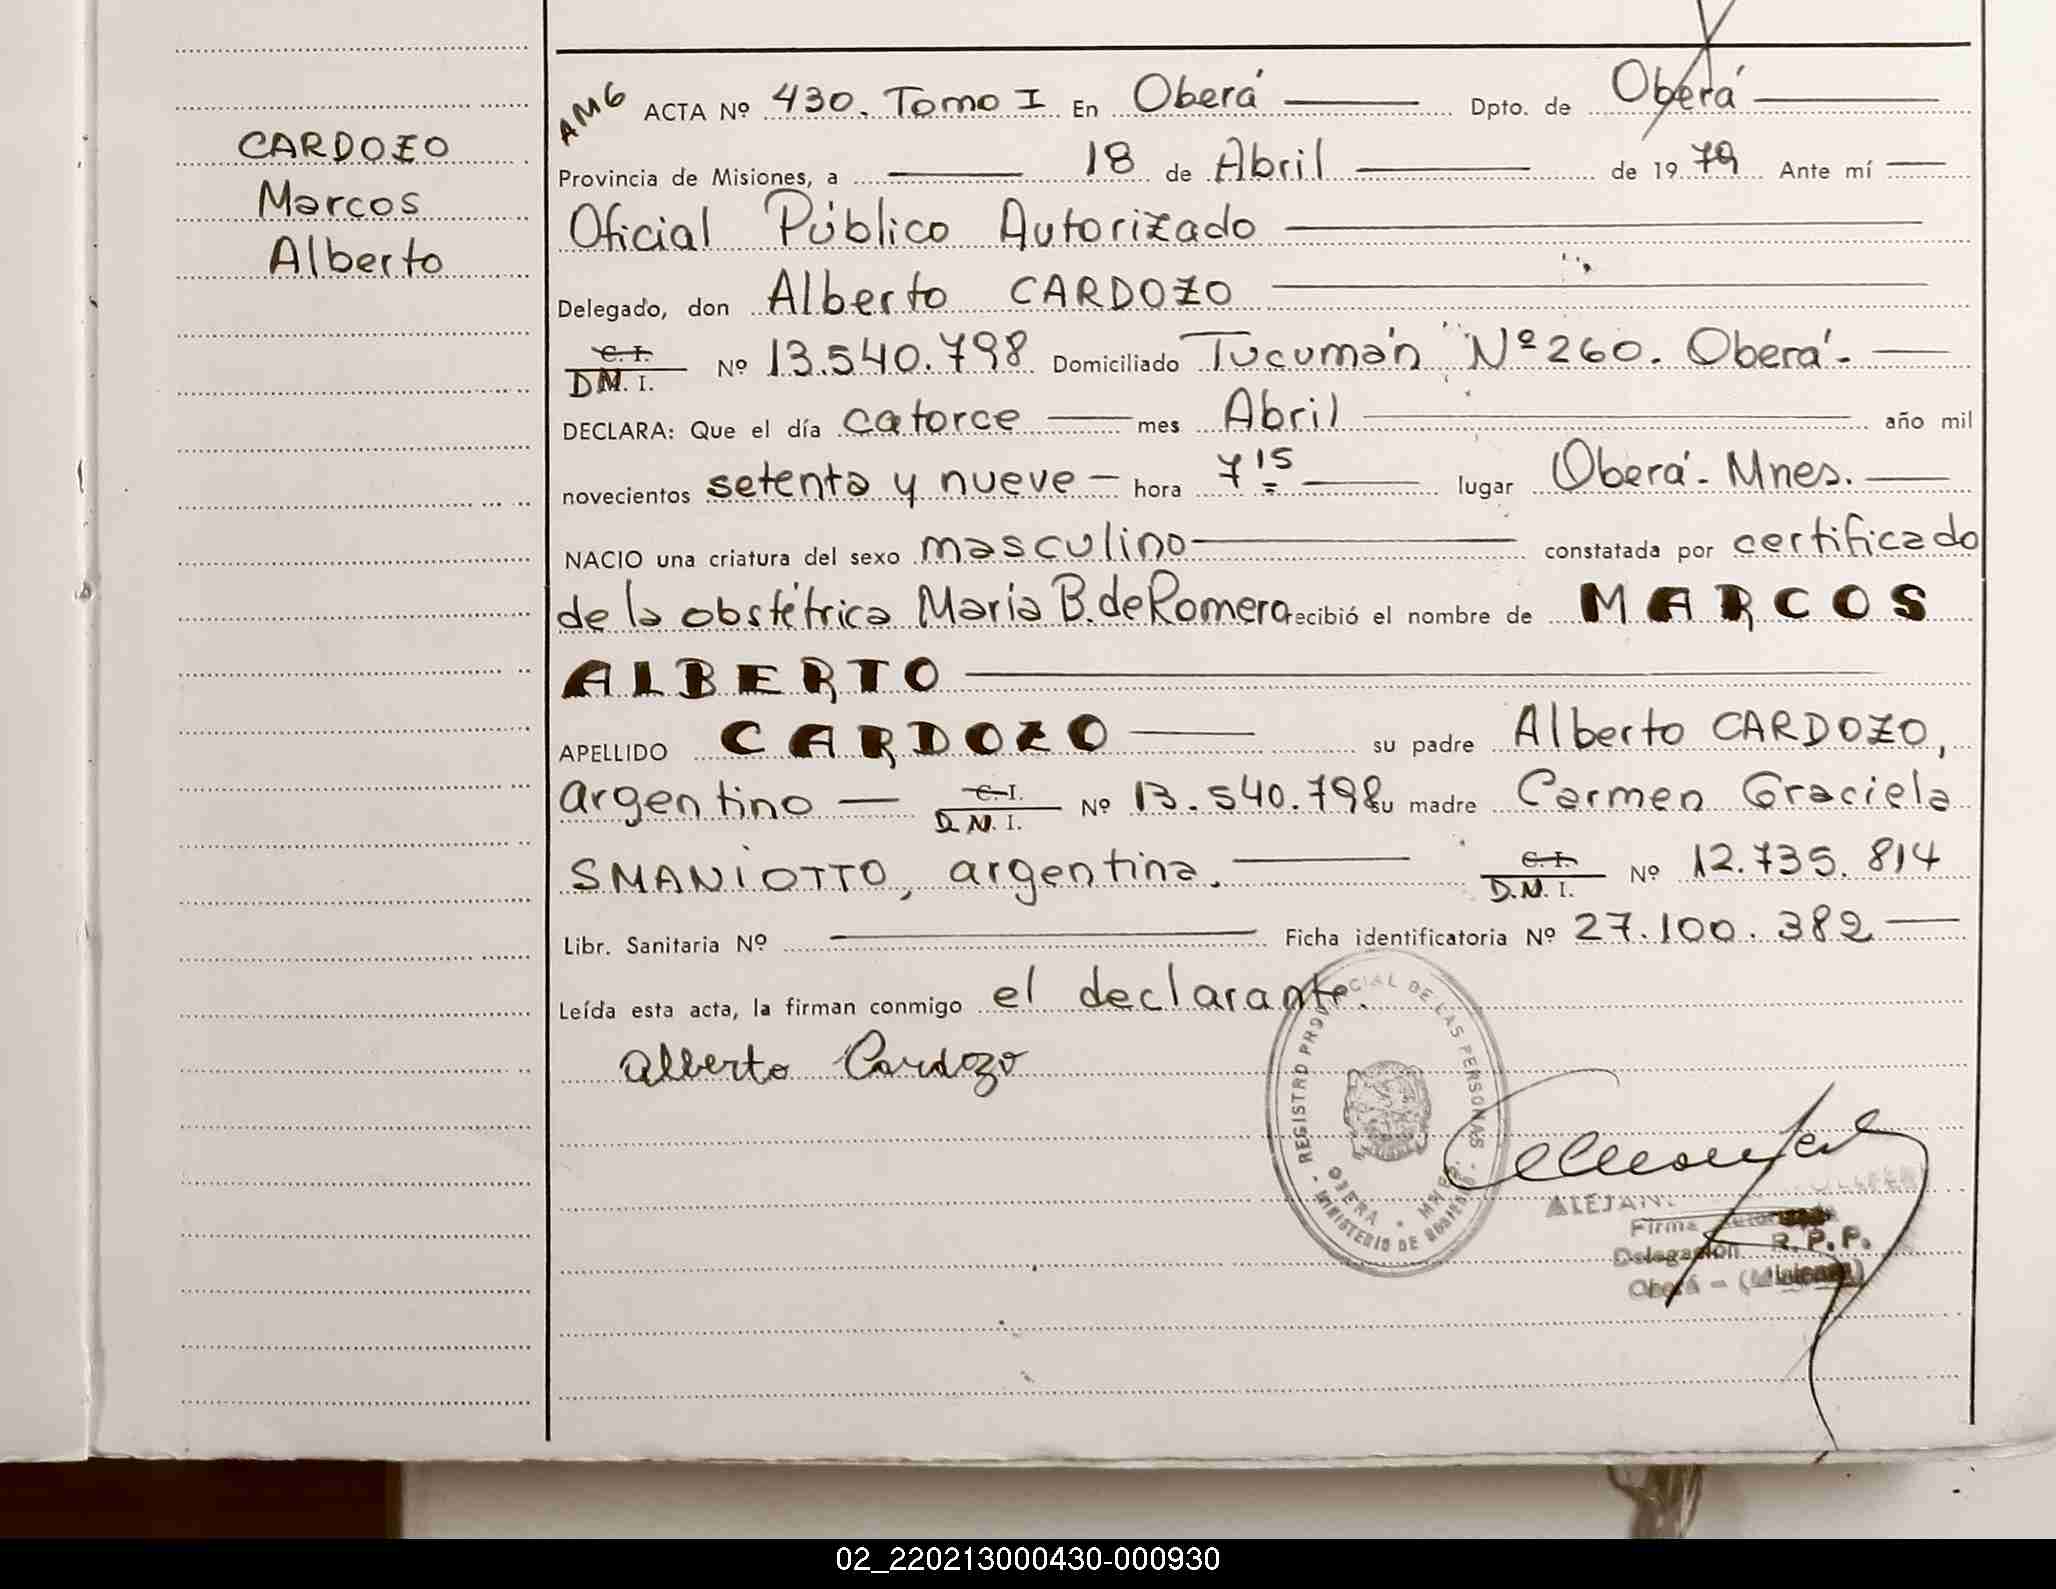 CARDOZO
Marcos
Alberto
AMG ACTA Nº 430. Tomo I En Oberá Dpto. de Oberá
Provincia de Misiones, a 18 de Abril de 1979 Ante mí
Oficial Público Autorizado
Delegado, don Alberto CARDOZO
C. I.
D.N. I. Nº 13.540.798 Domiciliado Tucumán Nº 260. Oberá.
DECLARA: Que el día catorce mes Abril año mil
novecientos setenta y nueve hora 7 15 lugar Oberá - Mnes.
NACIO una criatura del sexo masculino constatada por certificado
de la obstétrica María B. de Romero recibió el nombre de MARCOS
ALBERTO
APELLIDO CARDOZO su padre Alberto CARDOZO,
argentino C. I.
D.N. I. Nº 13.540.798 su madre Carmen Graciela
SMANIOTTO, argentina. C. I.
D.N. I. Nº 12.735.814
Libr. Sanitaria Nº Ficha identificatoria Nº 27.100.382
Leída esta acta, la firman conmigo el declarante.
Alberto Cardozo
REGISTRO PROVINCIAL DE LAS PERSONAS
OBERA - MNES.
MINISTERIO DE GOBIERNO
Firma
Delegación R.P.P.
Oberá - (Misiones)
02_220213000430-000930